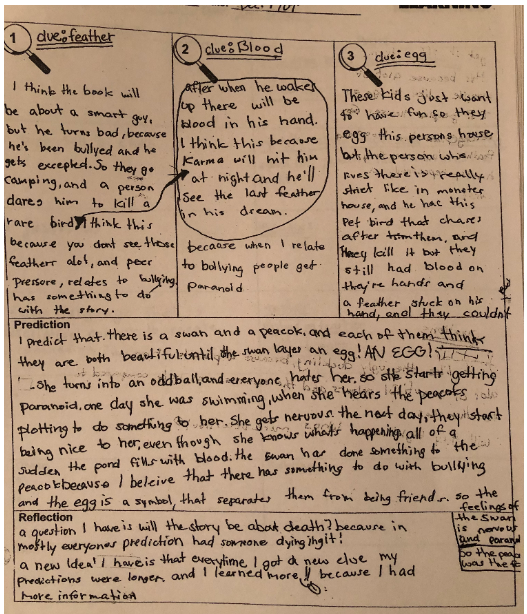 LEARNING
1 clue: feather
I think the book will
be about a smart guy,
but he turns bad, because
he's been bullyed and he
gets excepted. So they go
camping, and a person
dares him to kill a
rare bird, I think this
because you dont see those
feathers alot, and peer
pressure, relates to bullying.
has something to do
with the story.
2 clue: Blood
after when he wakes
up there will be
blood in his hand.
I think this because
Karma will hit him
at night and he'll
see the last feather
in his dream.
because when I relate
to bollying people get
paranoid
3 clue: egg
These kids just want
to have fun. so they
egg this persons house
but, the person who
lives there is really
strict like in monster
house, and he has this
Pet bird that chases
after them, and
they kill it but they
still had blood on
they're hands and
a feather stuck on his
hand, and they couldn't
Prediction
I predict that there is a swan and a peacok, and each of them think
they are both beatiful until the swan layes an egg! AN EGG!
She turns into an oddball, and everyone hates her. so she starts getting
paranoid, one day she was swimming, when she hears the peacoks
plotting to do something to her. She gets nervous. the next day, they start
being nice to her, even though she knows whats happening, all of a
sudden the pond fills with blood. the swan has done something to the
peacok because I beleive that there has something to do with bullying
and the egg is a symbol, that separates them from being friends. so the
feelings of
the swan
is nervous
and parano
so the peac
was the
Reflection
a question I have is will the story be about death? because in
mostly everyones prediction had someone dying in it!
a new Idea! I have is that everytime I got a new clue my
predictions were longer, and I learned more!, because I had
more information